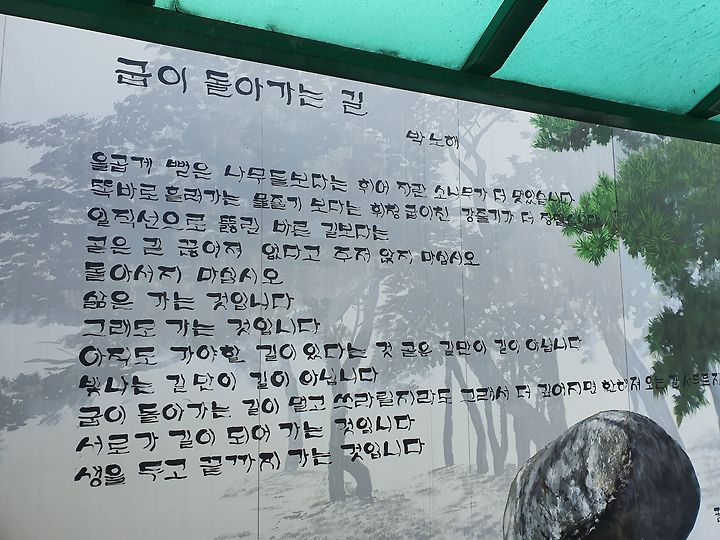 굽이 돌아가는 길
박노해
올곱게 뻗은 나무들보다는 휘어 자란 소나무가 더 멋있습니다
똑바로 흘러가는 물줄기 보다는 휘청 굽이친 강줄기가 더
일직선으로 뚫린 바른 길보다는
곧은 길 끊어져 없다고 주저 앉지 마십시오
돌아서지 마십시오
삶은 가는 것입니다
그래도 가는 것입니다
아직도 가야할 길이 있다는 것 곧은 길만이 길이 아닙니다
빛나는 길만이 길이 아닙니다
굽이 돌아가는 길이 멀고 쓰라릴지라도 그래서 더 깊어지면 환해져 오는 길 서두르지
서로가 길이 되어 가는 것입니다
생을 두고 끝까지 가는 것입니다